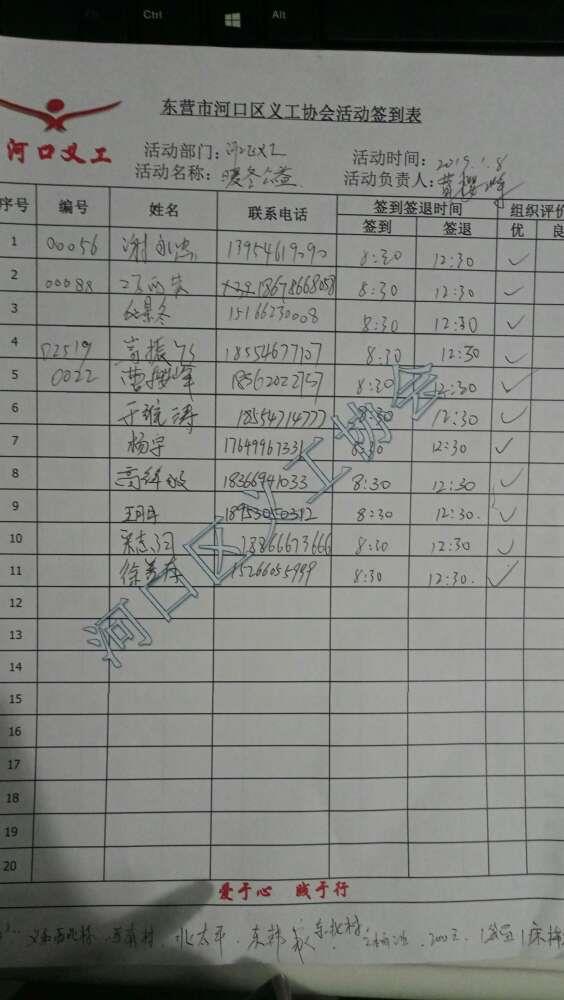 Ctrl
Alt
东营市河口区义工协会活动签到表
河口义工
活动部门：
活动时间：2019.1.8
活动名称：暖冬公益
活动负责人：曹樱峰
序号 编号 姓名 联系电话 签到签退时间 组织评价
签到 签退 优 良
1 00056 谢永忠 13954619090 8:30 12:30 ✓
2 00088 18678668058 8:30 12:30 ✓
3 15166230008 8:30 12:30 ✓
4 02519 高振 18554677107 8:30 12:30 ✓
5 0022 曹樱峰 18562022757 8:30 12:30 ✓
6 于 涛 18554714777 8:30 12:30 ✓
7 杨宇 17649967331 8:30 12:30 ✓
8 高 18366941033 8:30 12:30 ✓
9 18953050312 8:30 12:30. ✓
10 宋志 18866673666 8:30 12:30 ✓
11 徐 15266055999 8:30 12:30. ✓
12
13
14
15
16
17
18
19
20
河口区义工协会
爱于心 践于行
北太平. 东韩 东北村